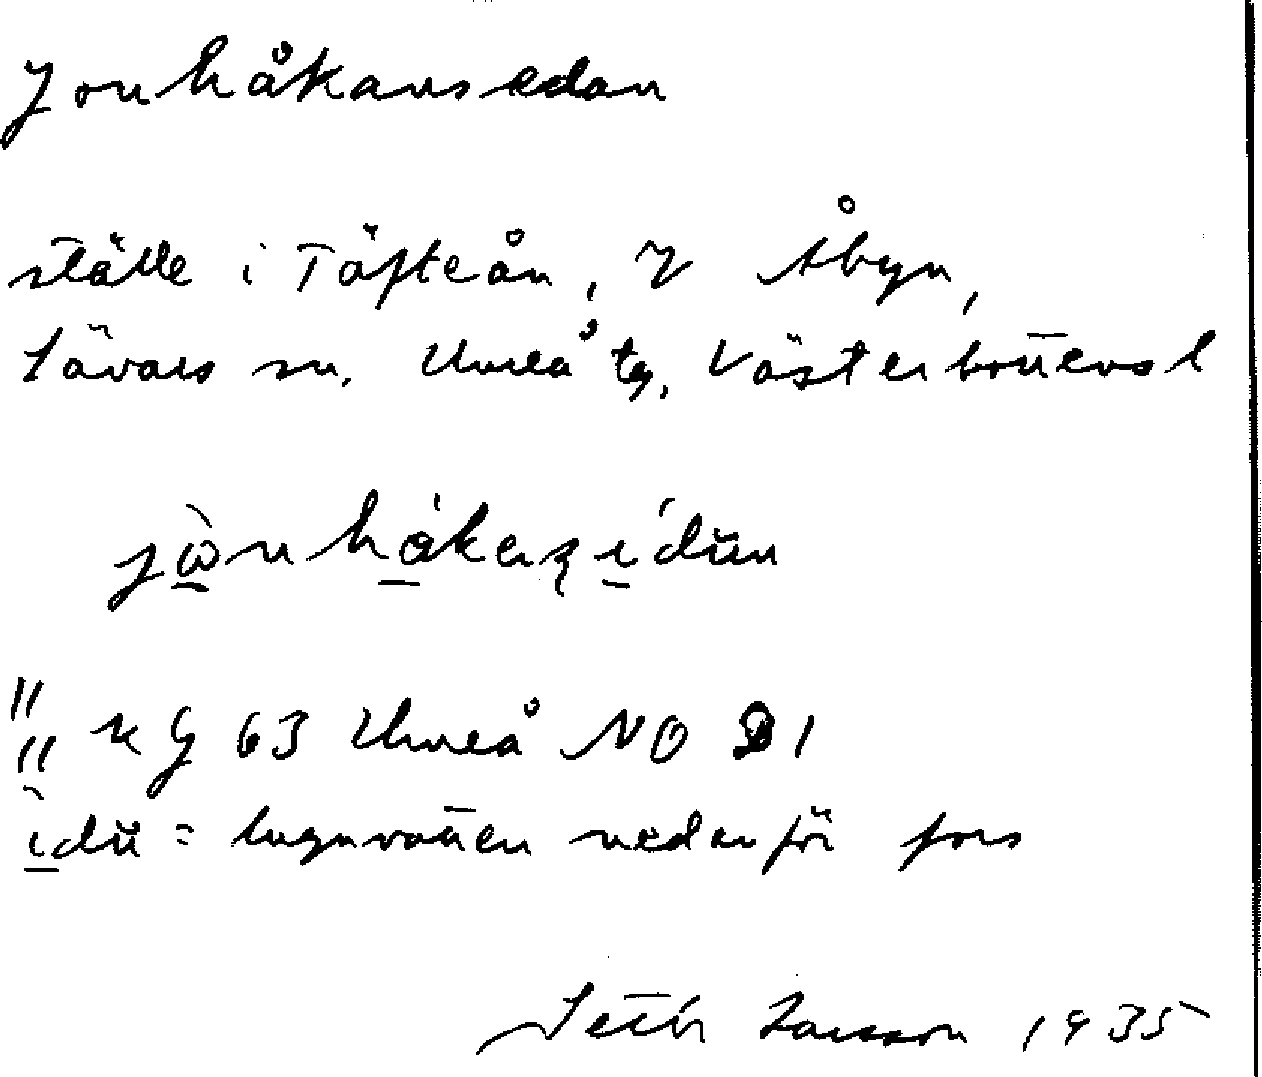 Jonhåkansedan
ställe i Täfteån, V Åbyn,
Sävars sn, Umeå tg, Västerbottens l
" KG 63 Umeå NO D1
"
ìdü = lugnvatten nedanför fors
Seth Larsson 1935